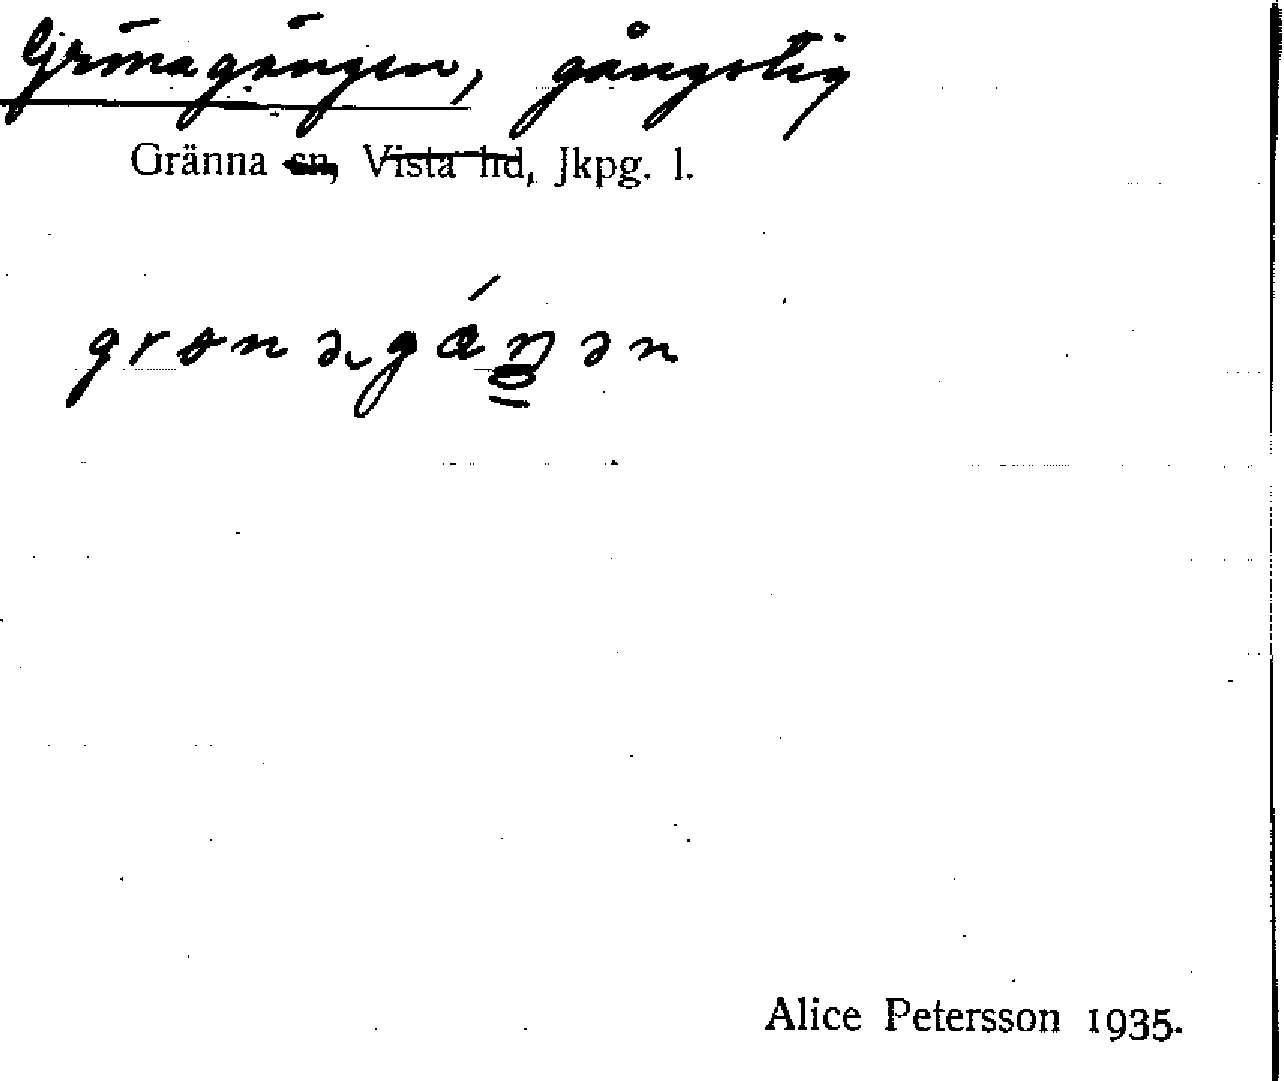 Grönagången, gångstig
Gränna sn, Vista hd, Jkpg. l.
Alice Petersson 1935.